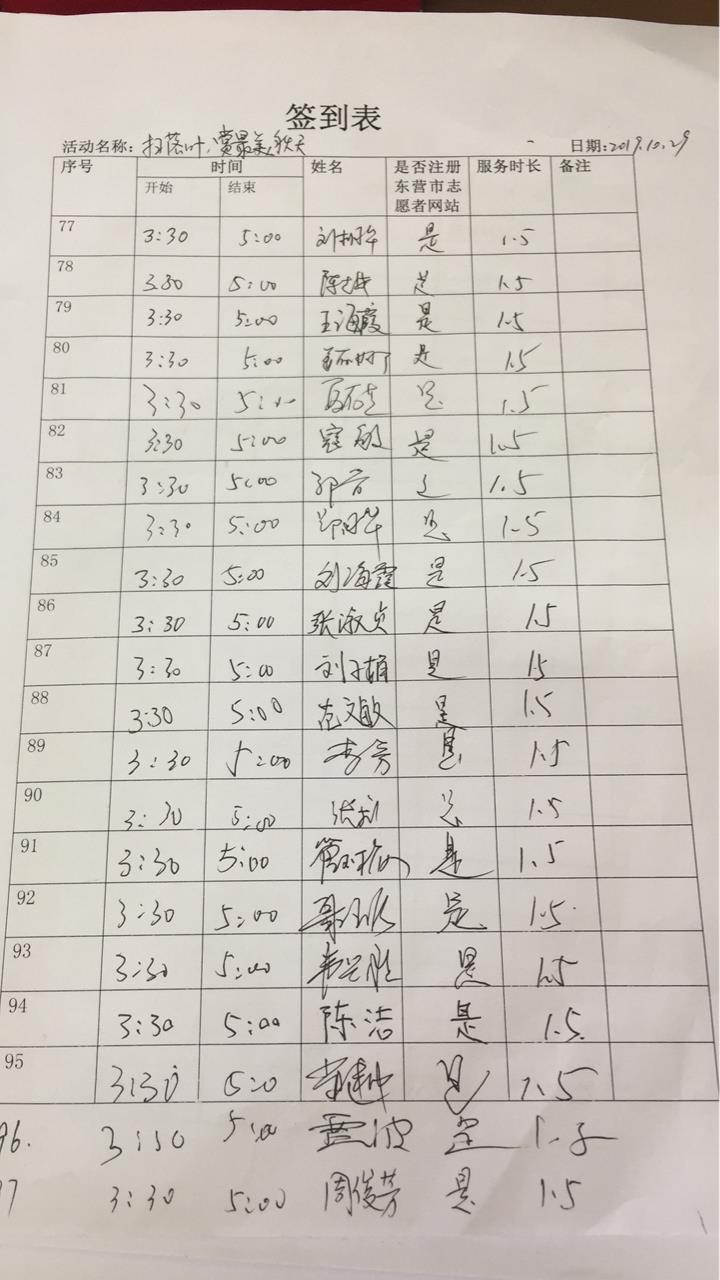 签到表
活动名称：扫落叶，赏最美秋天 日期：2019.10.29
序号 时间 姓名 是否注册东营市志愿者网站 服务时长 备注
开始 结束
77 3:30 5:00 是 1.5
78 3:30 5:00 是 1.5
79 3:30 5:00 王海霞 是 1.5
80 3:30 5:00 是 1.5
81 3:30 5:00 是 1.5
82 3:30 5:00 寇敏 是 1.5
83 3:30 5:00 是 1.5
84 3:30 5:00 是 1.5
85 3:30 5:00 刘海霞 是 1.5
86 3:30 5:00 张淑贞 是 1.5
87 3:30 5:00 是 1.5
88 3:30 5:00 范文敏 是 1.5
89 3:30 5:00 李芳 是 1.5
90 3:30 5:00 是 1.5
91 3:30 5:00 是 1.5
92 3:30 5:00 是 1.5
93 3:30 5:00 是 1.5
94 3:30 5:00 陈洁 是 1.5
95 3:30 5:0 是 1.5
96. 3:30 5:00 是 1.5
7 3:30 5:00 周俊芳 是 1.5